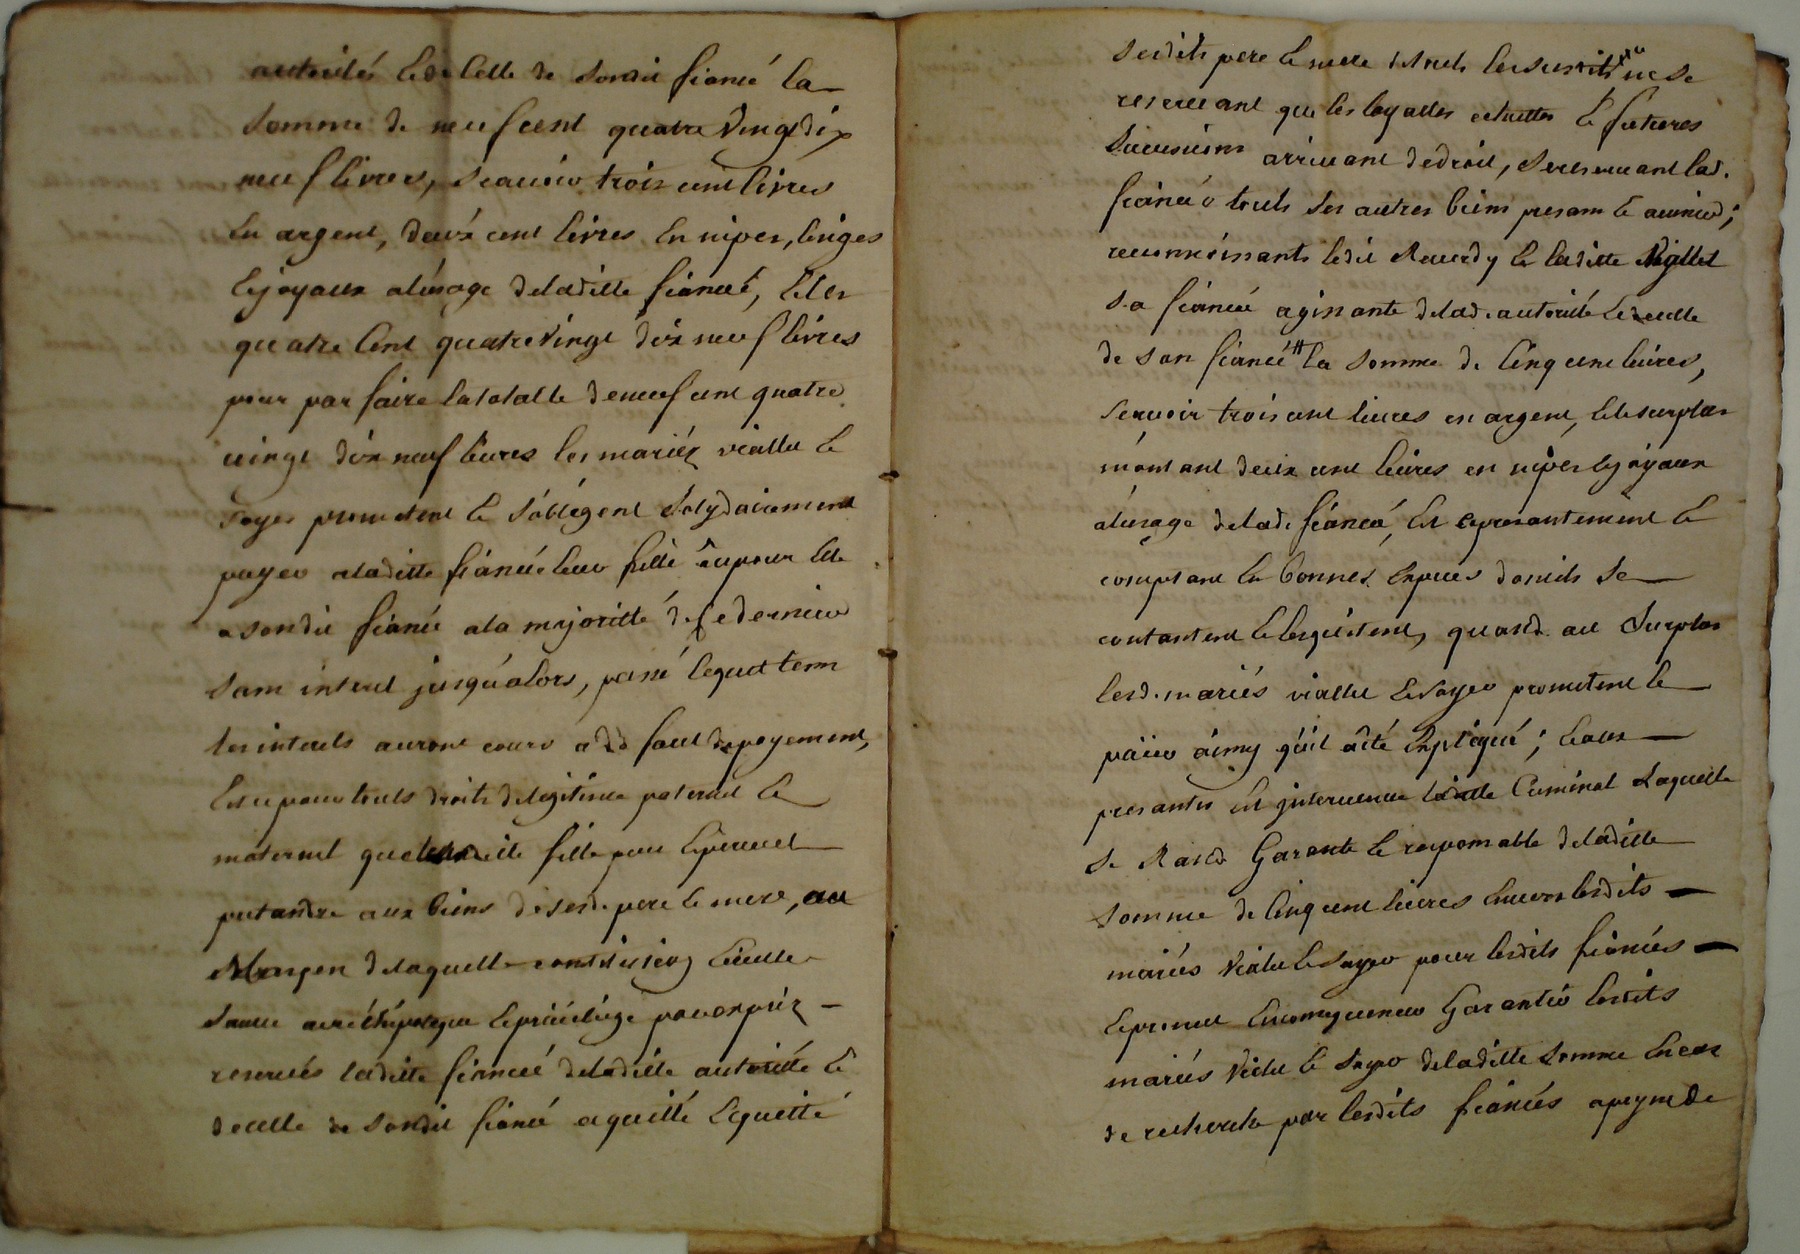 autorités et de celle de sondit fiancé la
somme de neuf cent quatre vingt dix
neuf livres, scavoir trois cent livres
en argent, deux cent livres en nipes, linges
et joyaux a lusage de laditte fiancée, et les
quatre cent quatre vingt dix neuf livres
pour parfaire la totalle de neuf cent quatre
vingt dix neuf livres les mariéz viallet et
promettent et s'obligent solydairement
payer a laditte fiancée leur fille ou pour elle
a sondit fiancé a la majoritté de ce dernier
sans interet jusqu'alors, passé lequel term
les interets auront cours a deffaut de payement,
et ce pour touts droits de legitime paternel et
maternel que fille peut
pretandre aux biens de sesd. pere et mere, au
Moyen de laquelle constitution
sauve hipoteque et privilege
reservés laditte fiancée de laditte autorité et
de celle de sondit fiancé aquitté et quitté
sesdits pere et mere touts les susdits ne se
reservant que les loyalles echuttes et futures
sucesions arrivant de droit, se reservant lad.
fiancée touts ses autres biens presans et avenir;
reconnoissants ledit Reverdy et laditte
sa fiancée agissante de lad. autorité et de celle
de son fiancé # la somme de cinq cent livres,
scavoir trois cent livres en argent, et le surplus
montant deux cent livres en nipes et joyaux
a lusage de lad. fiancée, et ce presantement et
comptant en bonnes especes dont ils se
contantent et les quittent, quand au surplus
lesd. mariés viallet et promettent le
paier ainsy qu'il a été expliqué; et aux
presantes est intervenue laditte laquelle
se Rand Garante et responsable de laditte
somme de cinq cent livres envers lesdits
mariés Viallet et pour lesdits fiancés
et promet en consequence Garantir lesdits
mariés Viallet et de laditte somme en cas
de recherche par lesdits fiancés a peyne de